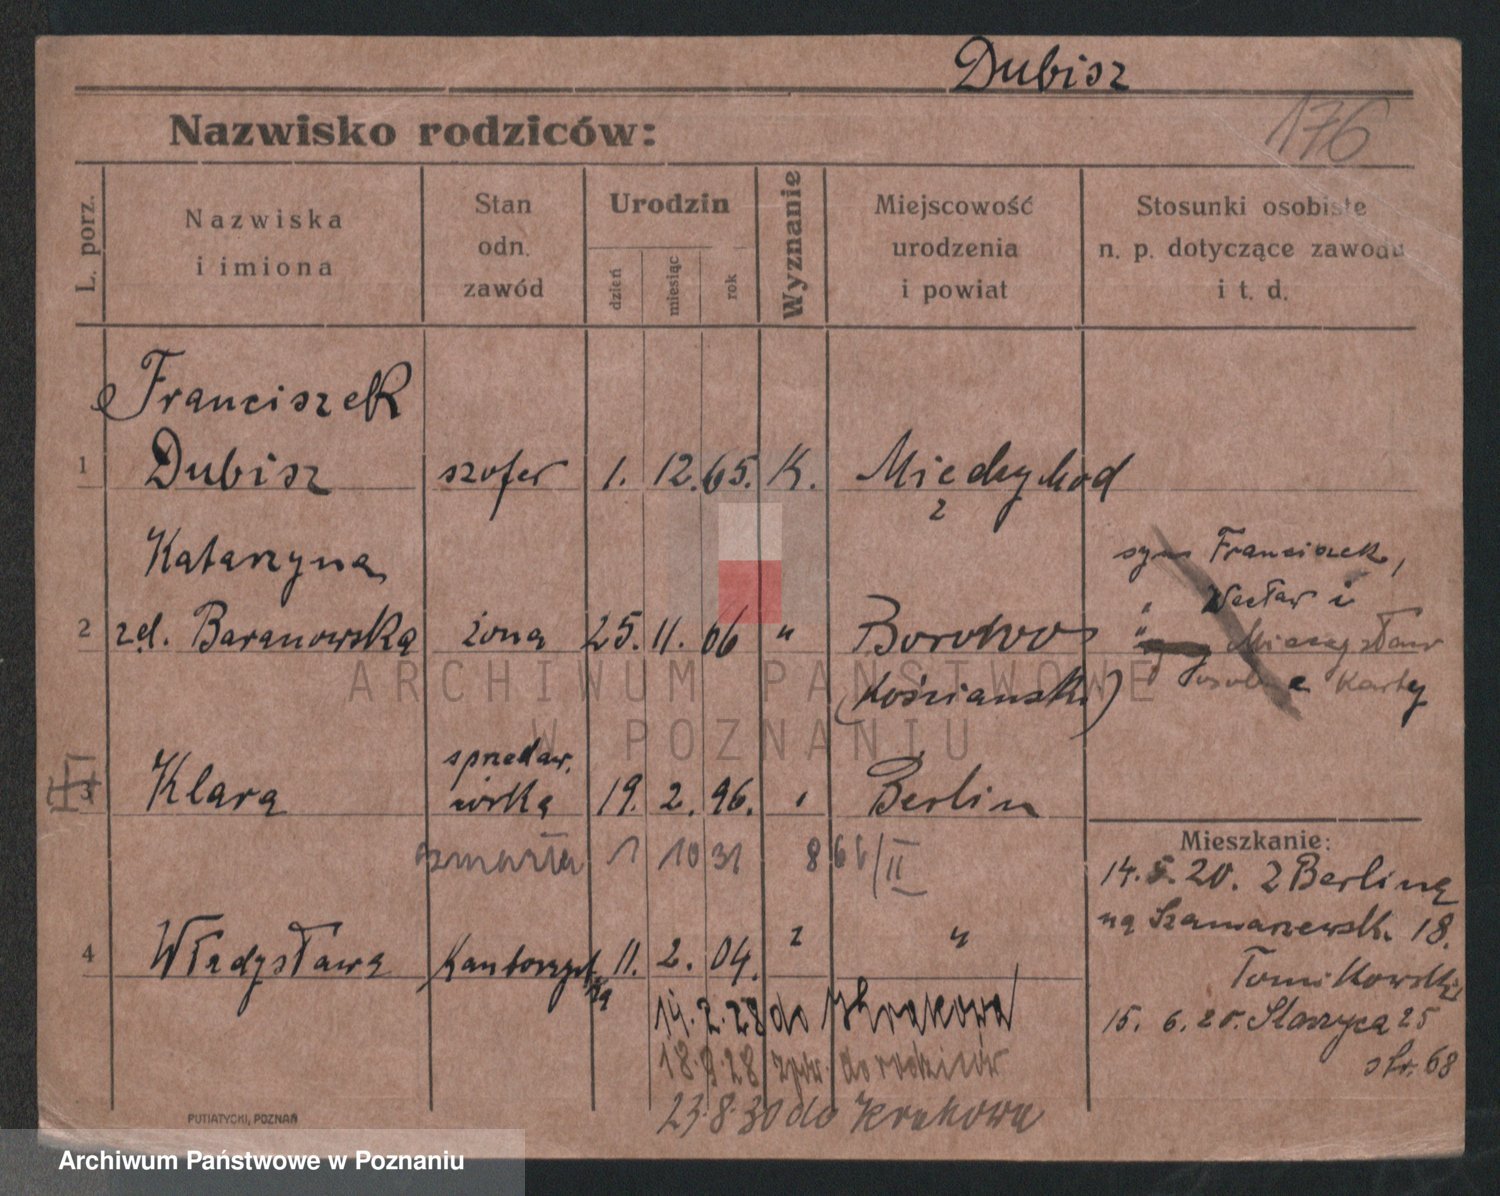 Dubisz
176
Nazwisko rodziców:
L. porz.
Nazwiska
i imiona
Stan
odn.
zawód
Urodzin
dzień
miesiąc
rok
Wyznanie
Miejscowość
urodzenia
i powiat
Stosunki osobiste
n. p. dotyczące zawodu
i t. d.
Franciszek
1 Dubisz szofer 1. 12. 65. K. Międzychod
Katarzyna
2 zd. Baranowska żona 25. 11. 06 " Borowo
(Kościański)
syn Franciszek,
" Wacław i
" Mieczysław
osobne Karty
3 Klara sprzedaw. 19. 2. 96. Berlin
zmarła 1 10 31 866/II
4 Władysława 11. 2. 04. "
14.2.28 do Krakowa
18.9.28 do rodziców
23.8.30 do Krakowa
Mieszkanie:
14. 5. 20. z Berlina
na 18.
15. 6. 20. Staszyca 25
str. 68
PUTIATYCKI, POZNAŃ
ARCHIWUM PAŃSTWOWE
W POZNANIU
Archiwum Państwowe w Poznaniu